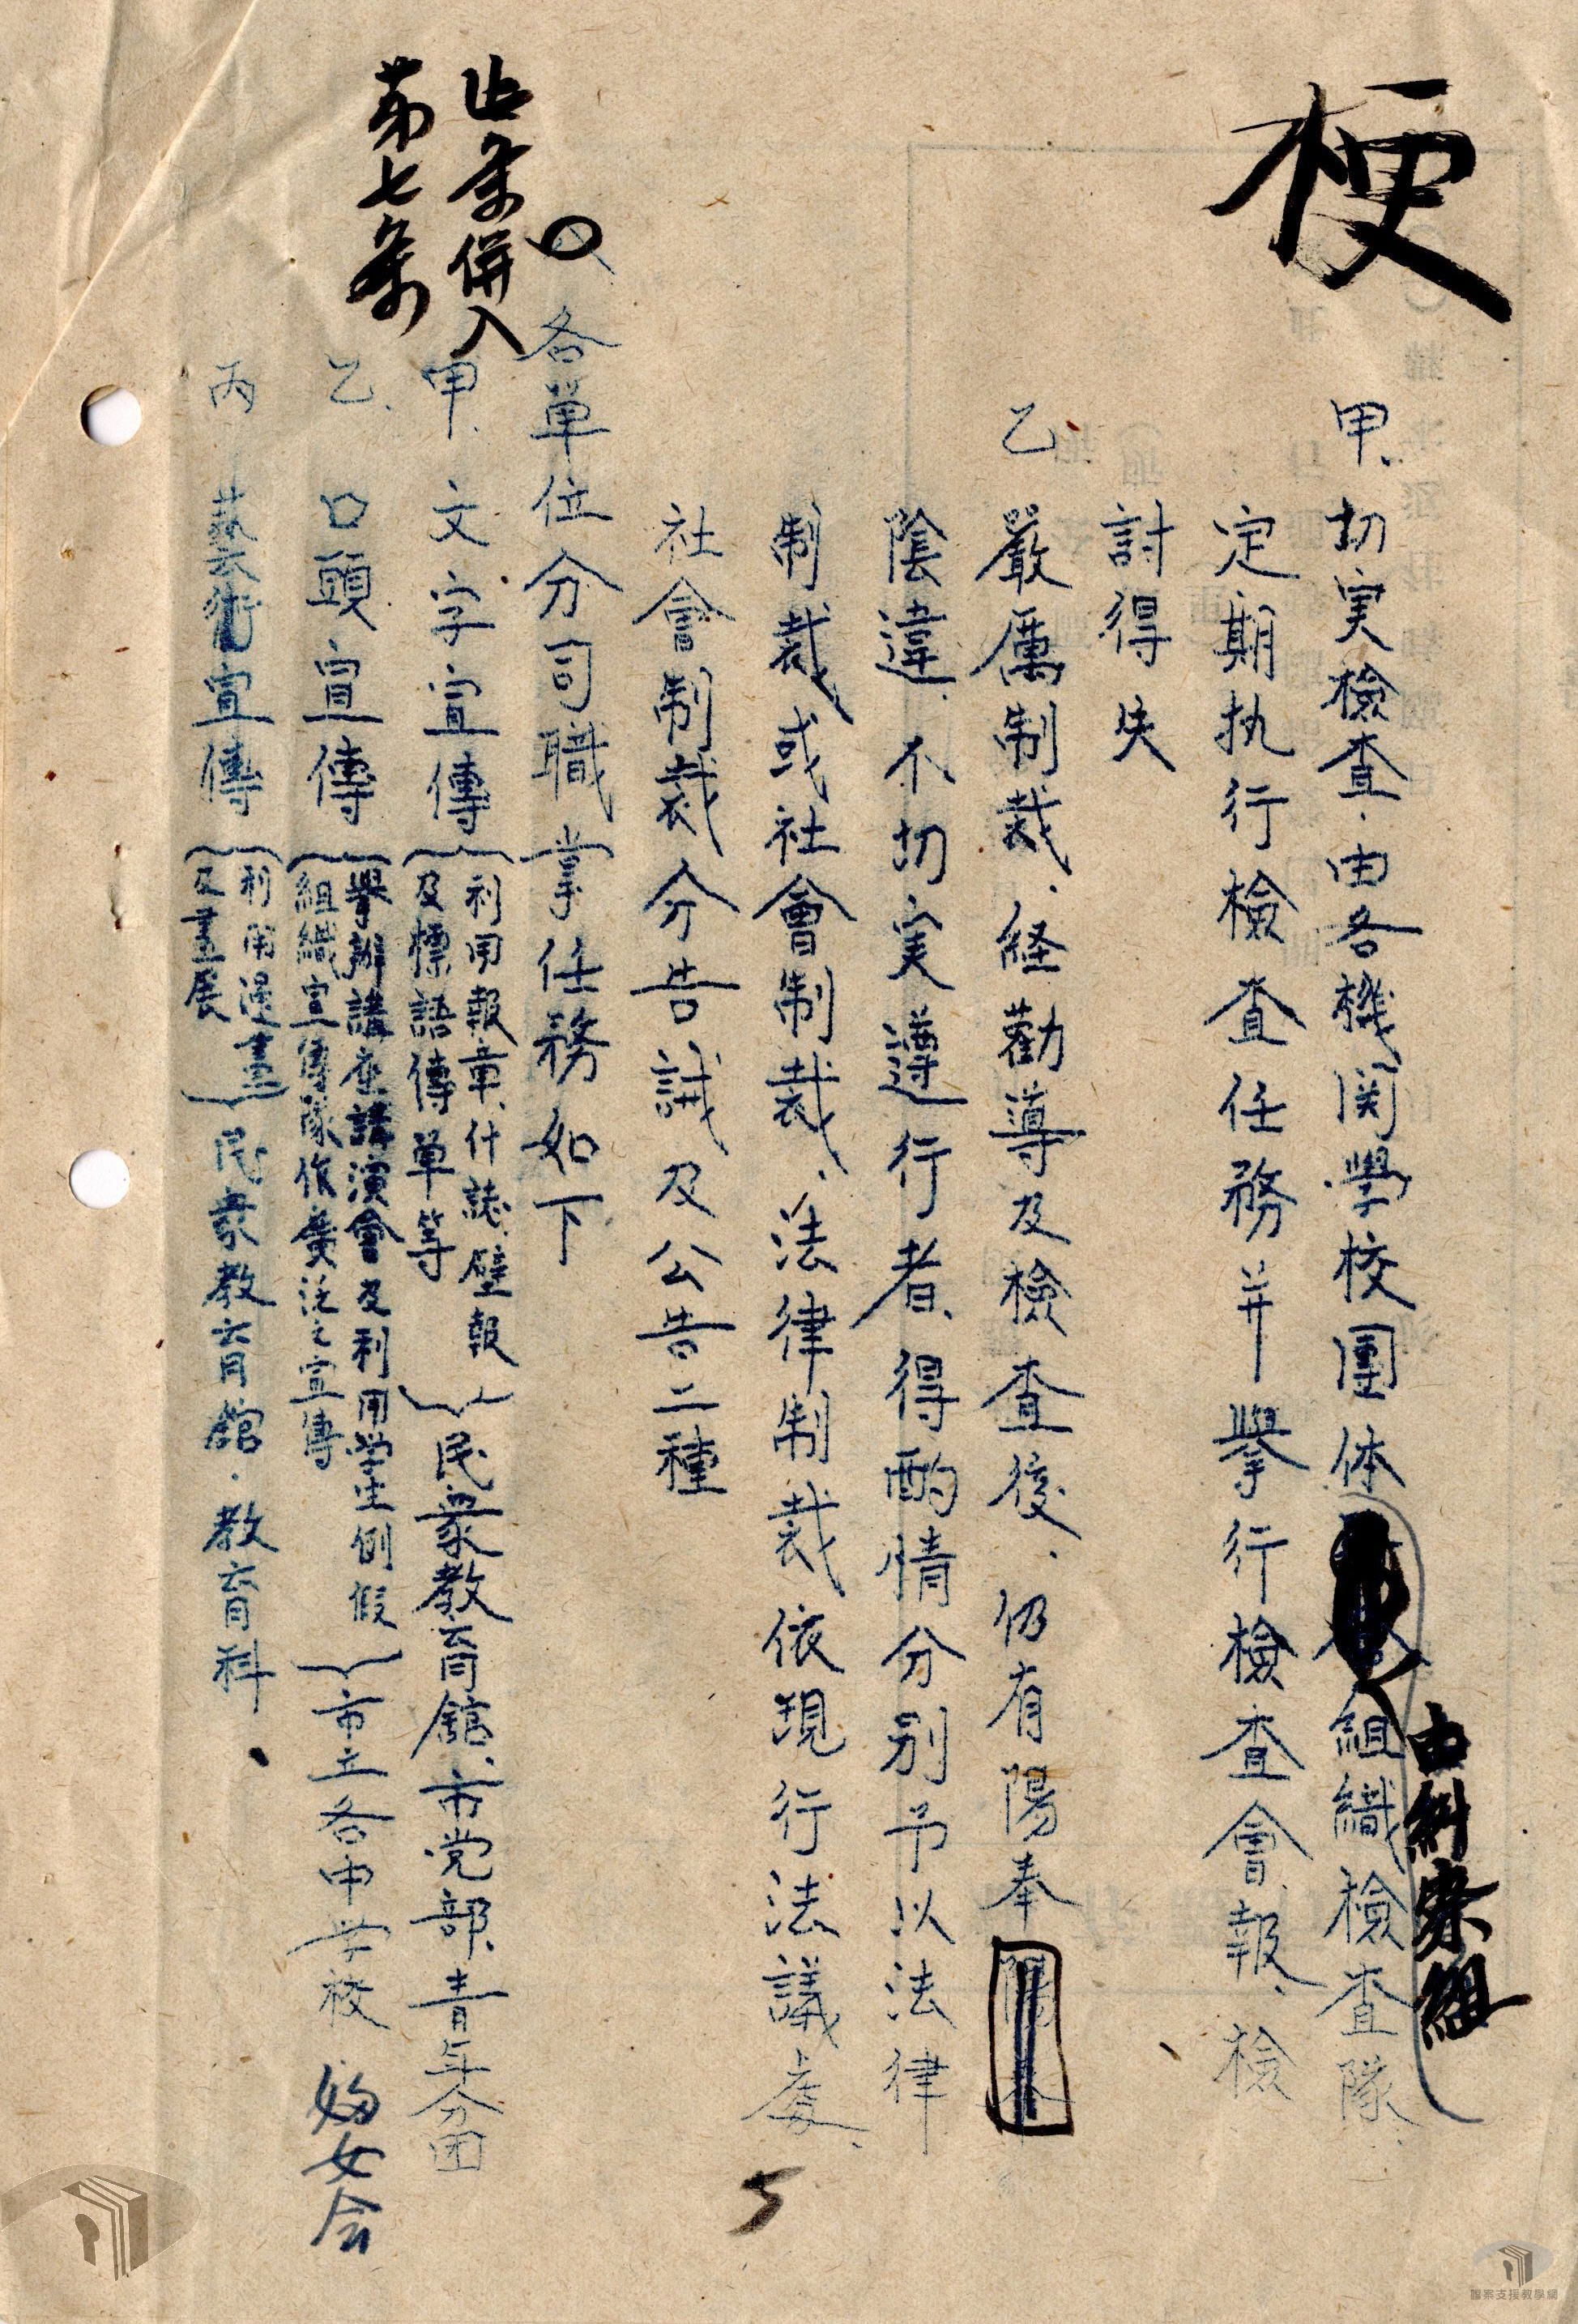 梗
甲、切実檢查、由各機関學校團体組織檢查隊、
由糾察組
定期执行檢查任務并擧行檢查會報、檢
討得失
乙、嚴厲制裁、経勸導及檢查後、仍有陽奉
陰違、不切実遵行者、得酌情分別予以法律
制裁或社會制裁、法律制裁依現行法議處、
社會制裁分告誡及公告二種
各單位分司職掌任務如下
此条併入
第七条
甲、文字宣傳
利用報章、什誌、壁報
及標語傳单等
民衆教育館、市党部、青年分団
乙、口頭宣傳
舉辦講座講演會及利用学生例假
組織宣傳隊作廣泛之宣傳
市立各中学校 婦女会
丙 藝術宣傳
利用漫畫
及畫展
民衆教育館、教育科
5
檔案支援教學網